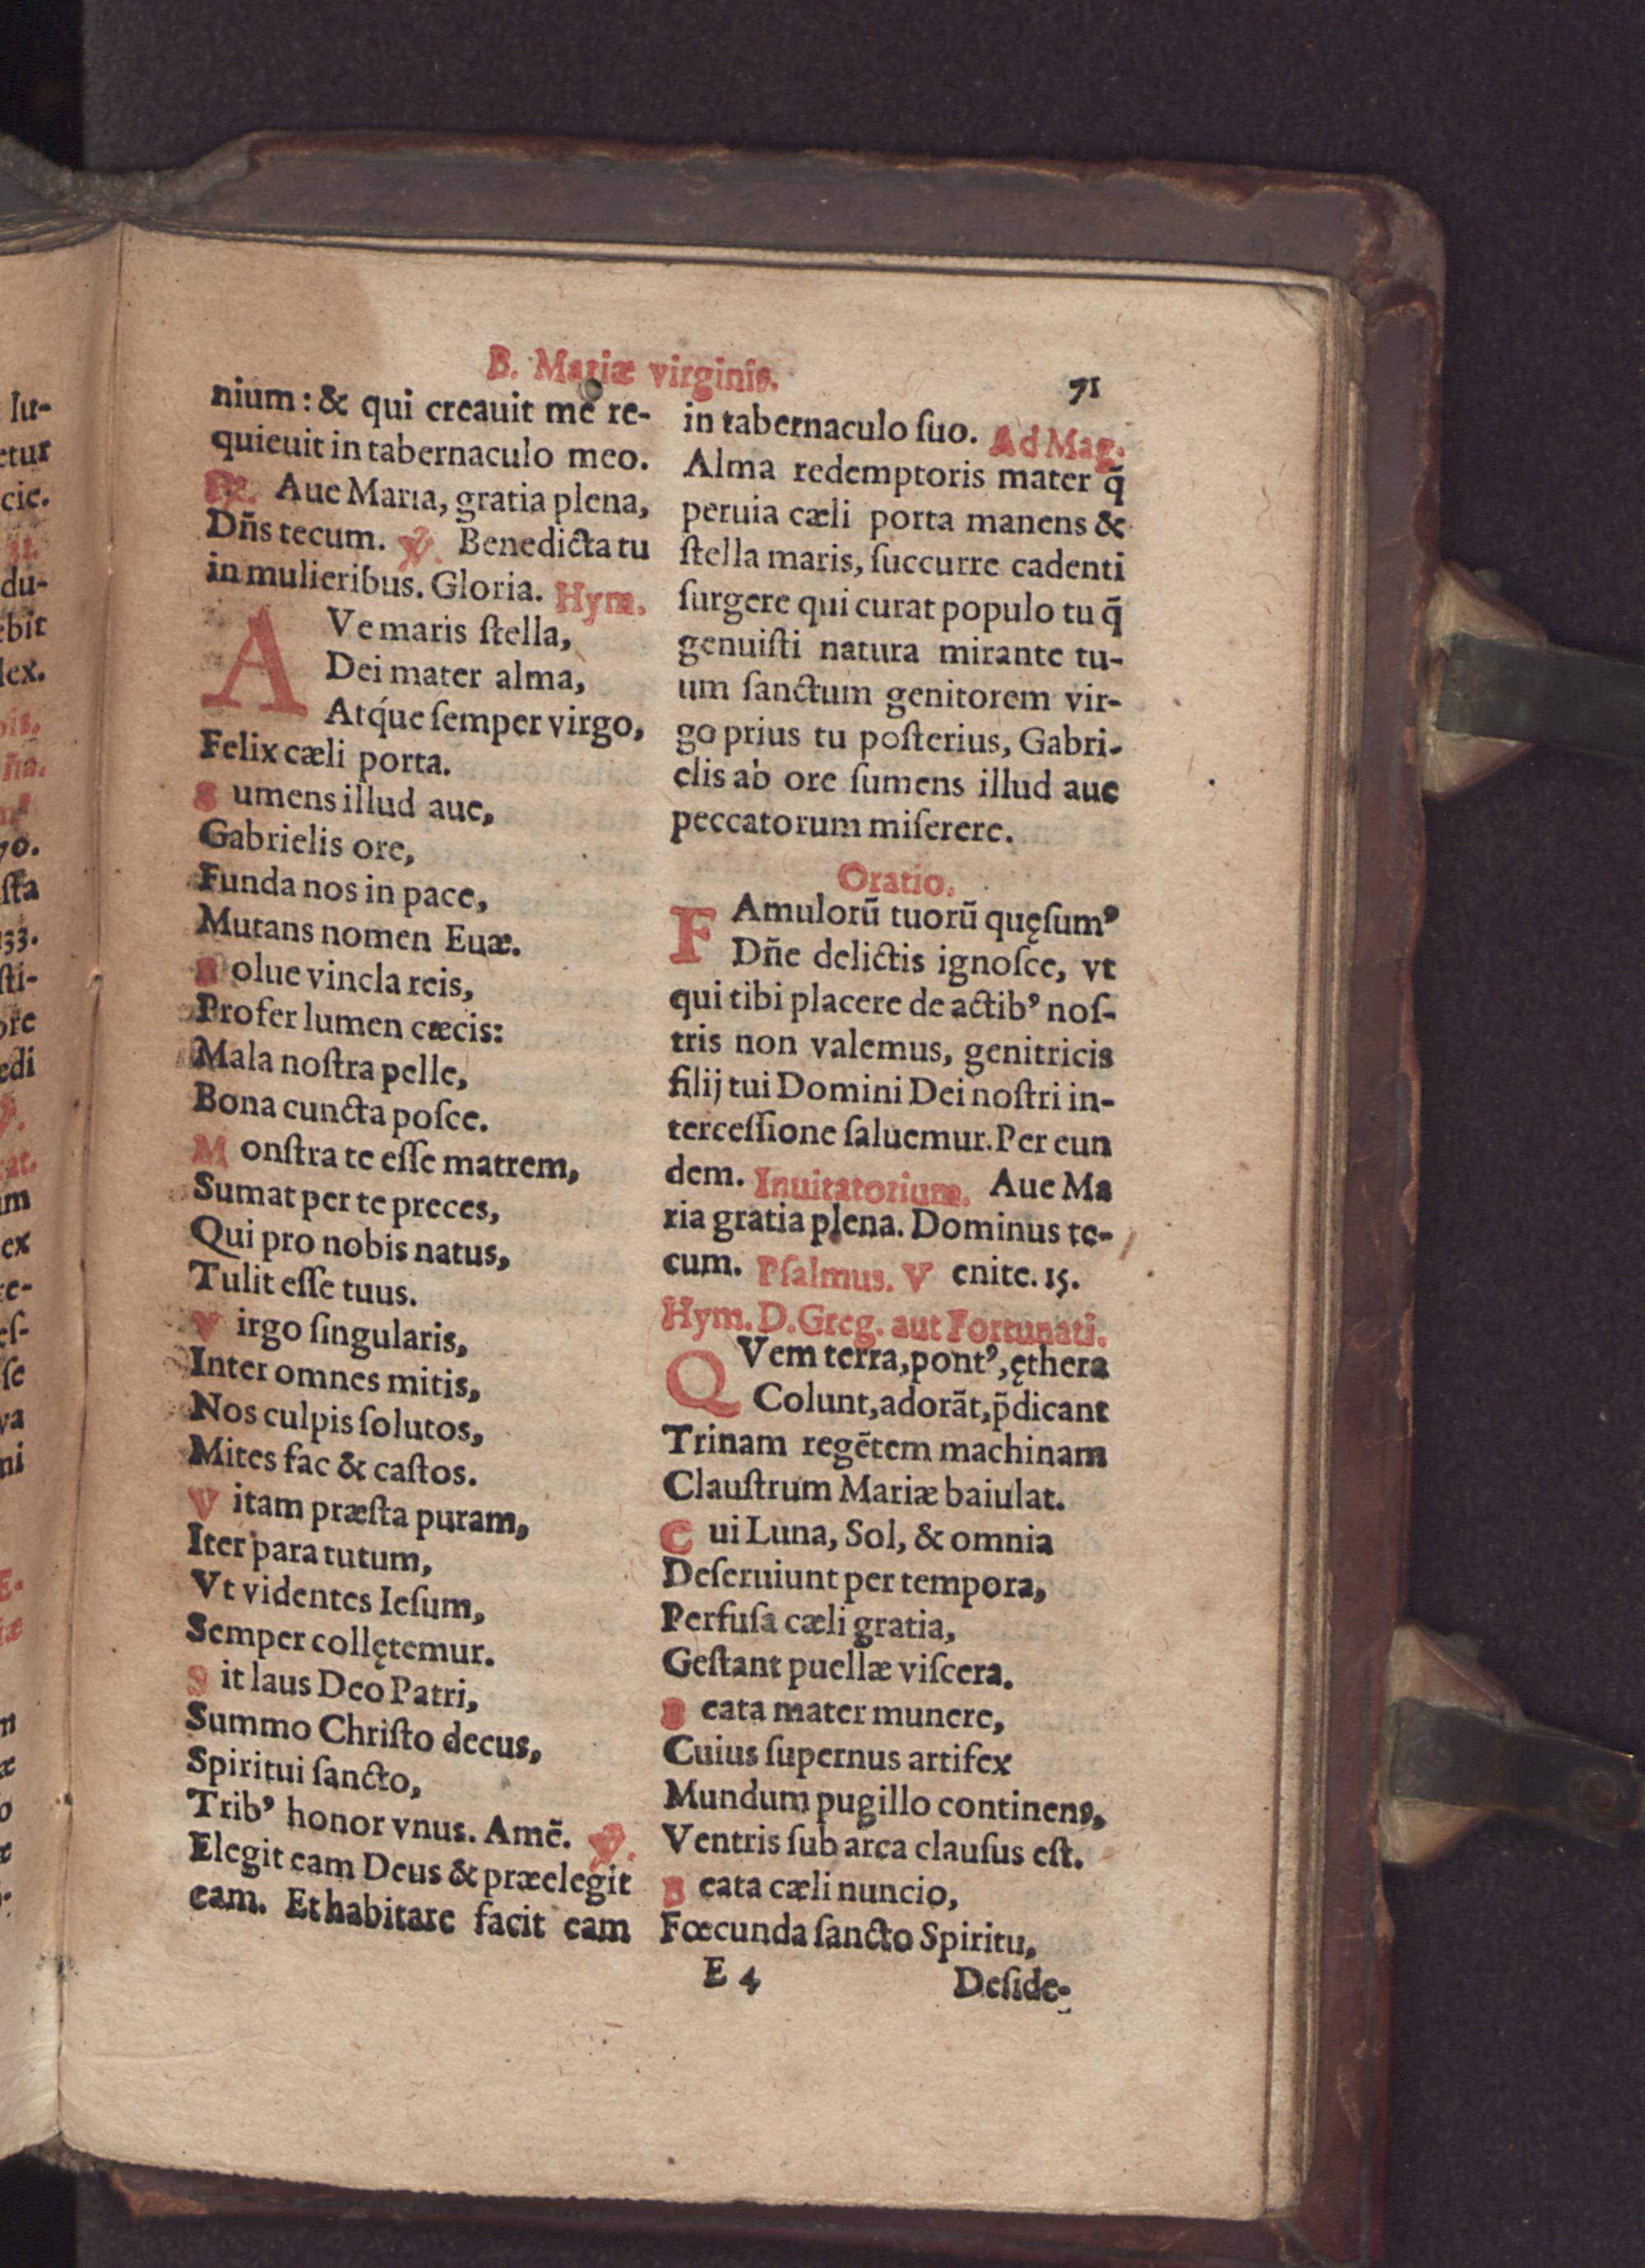 B. Mariæ virginis. 71
nium: & qui creauit me re-
quieuit in tabernaculo meo.
℞. Aue Maria, gratia plena,
Dn̄s tecum. ℣. Benedicta tu
in mulieribus. Gloria. Hym.
AVe maris ſtella,
Dei mater alma,
Atq́ue ſemper virgo,
Felix cæli porta.
Sumens illud aue,
Gabrielis ore,
Funda nos in pace,
Mutans nomen Euæ.
Solue vincla reis,
Profer lumen cæcis:
Mala noſtra pelle,
Bona cuncta poſce.
Monſtra te eſſe matrem,
Sumat per te preces,
Qui pro nobis natus,
Tulit eſſe tuus.
Virgo ſingularis,
Inter omnes mitis,
Nos culpis ſolutos,
Mites fac & caſtos.
Vitam præſta puram,
Iter para tutum,
Vt videntes Ieſum,
Semper collętemur.
Sit laus Deo Patri,
Summo Chriſto decus,
Spiritui ſancto,
Tribꝰ honor vnus. Amē. ℣.
Elegit eam Deus & præelegit
eam. Et habitare facit eam
in tabernaculo ſuo. Ad Mag.
Alma redemptoris mater q̄
peruia cæli porta manens &
ſtella maris, ſuccurre cadenti
ſurgere qui curat populo tu q̄
genuiſti natura mirante tu-
um ſanctum genitorem vir-
go prius tu poſterius, Gabri-
elis ab ore ſumens illud aue
peccatorum miſerere.
Oratio.
FAmulorū tuorū quęſumꝰ
Dn̄e delictis ignoſce, vt
qui tibi placere de actibꝰ noſ-
tris non valemus, genitricis
filij tui Domini Dei noſtri in-
terceſſione ſaluemur. Per eun
dem. Inuitatorium. Aue Ma
ria gratia plena. Dominus te-
cum. Pſalmus. Venite. 15.
Hym. D. Greg. aut Fortunati.
QVem terra, pontꝰ, ęthera
Colunt, adorāt, p̄dicant
Trinam regētem machinam
Clauſtrum Mariæ baiulat.
Cui Luna, Sol, & omnia
Deſeruiunt per tempora,
Perfuſa cæli gratia,
Geſtant puellæ viſcera.
Beata mater munere,
Cuius ſupernus artifex
Mundum pugillo continens,
Ventris ſub arca clauſus eſt.
Beata cæli nuncio,
Fœcunda ſancto Spiritu,
E 4 Deſide-